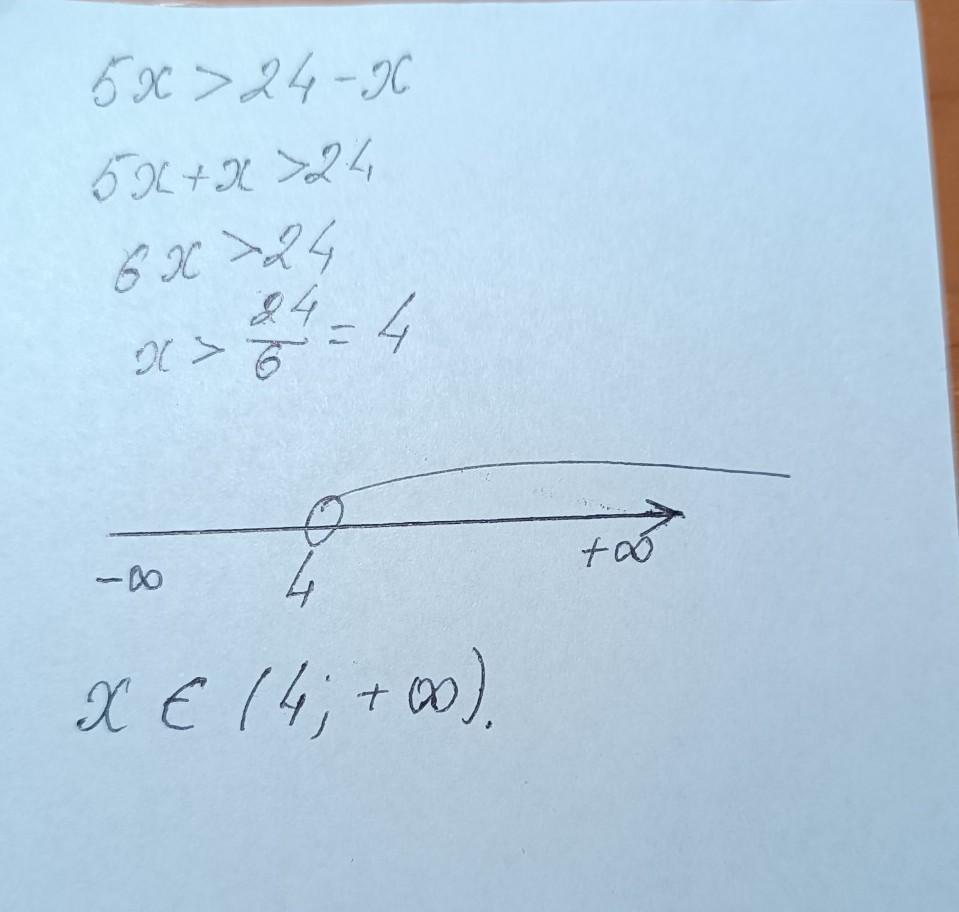 5x > 24 - x
5x + x > 24
6x > 24
x > 24/6 = 4
-∞ 4 +∞
x ∈ (4; +∞).